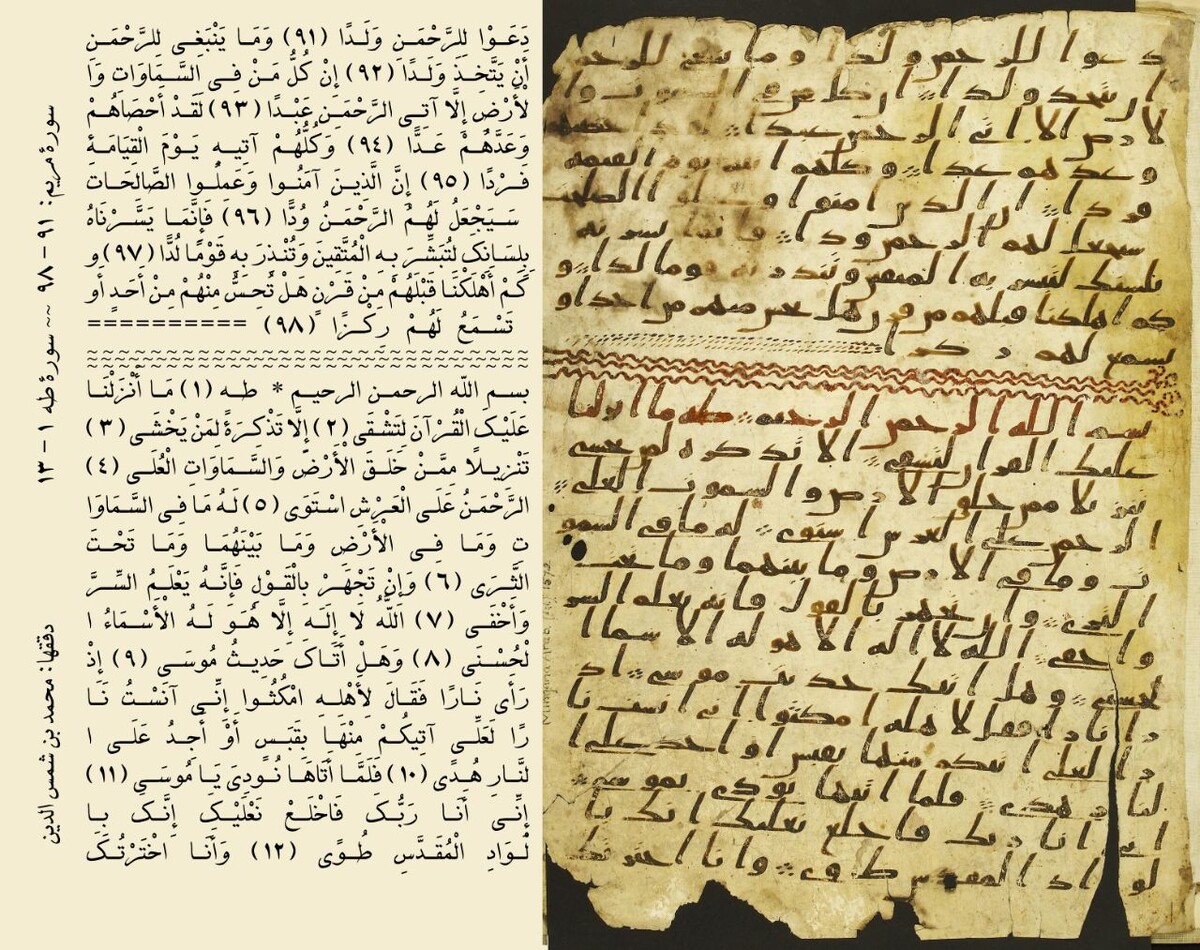 دَعَوْا لِلرَّحْمَـٰنِ وَلَـدًا (٩١) وَمَـا يَنْبَغِـي لِلرَّحْمَـٰنِ
أَنْ يَتَّخِـذَ وَلَـدًا (٩٢) إِنْ كُلُّ مَـنْ فِـي السَّـمَاوَاتِ وَا
لْأَرْضِ إِلَّا آتِـي الرَّحْمَـٰنِ عَبْـدًا (٩٣) لَقَـدْ أَحْصَاهُـمْ
وَعَدَّهُـمْ عَـدًّا (٩٤) وَكُلُّهُـمْ آتِيـهِ يَـوْمَ الْقِيَامَـةِ
فَـرْدًا (٩٥) إِنَّ الَّذِيـنَ آمَنُـوا وَعَمِلُـوا الصَّالِحَـاتِ
سَـيَجْعَلُ لَهُـمُ الرَّحْمَـٰنُ وُدًّا (٩٦) فَإِنَّمَـا يَسَّـرْنَاهُ
بِلِسَـانِكَ لِتُبَشِّـرَ بِـهِ الْمُتَّقِينَ وَتُنْـذِرَ بِهِ قَوْمًا لُدًّا (٩٧) وَ
كَـمْ أَهْلَكْنَـا قَبْلَهُمْ مِنْ قَـرْنٍ هَلْ تُحِسُّ مِنْهُمْ مِنْ أَحَـدٍ أَوْ
تَسْـمَعُ لَهُـمْ رِكْـزًا (٩٨) ==========
بسـم اللّٰه الرحمـن الرحيـم * طـه (١) مَـا أَنْزَلْنَـا
عَلَيْـكَ الْقُـرْآنَ لِتَشْـقَى (٢) إِلَّا تَذْكِـرَةً لِمَـنْ يَخْشَـى (٣)
تَنْزِيـلًا مِمَّـنْ خَلَـقَ الْأَرْضَ وَالسَّـمَاوَاتِ الْعُلَـى (٤)
الرَّحْمَـٰنُ عَلَـى الْعَـرْشِ اسْـتَوَى (٥) لَـهُ مَا فِـي السَّمَاوَا
تِ وَمَـا فِـي الْأَرْضِ وَمَـا بَيْنَهُمَـا وَمَـا تَحْـتَ
الثَّـرَى (٦) وَإِنْ تَجْهَـرْ بِالْقَـوْلِ فَإِنَّـهُ يَعْلَـمُ السِّـرَّ
وَأَخْفَـى (٧) اللَّهُ لَا إِلَـهَ إِلَّا هُـوَ لَـهُ الْأَسْمَاءُ ا
لْحُسْـنَى (٨) وَهَـلْ أَتَـاكَ حَدِيـثُ مُوسَـى (٩) إِذْ
رَأَى نَـارًا فَقَـالَ لِأَهْلِـهِ امْكُثُـوا إِنِّـي آنَسْـتُ نَـا
رًا لَعَلِّـي آتِيكُـمْ مِنْهَـا بِقَبَـسٍ أَوْ أَجِـدُ عَلَـى ا
لنَّـارِ هُـدًى (١٠) فَلَمَّـا أَتَاهَـا نُـودِيَ يَـا مُوسَـى (١١)
إِنِّـي أَنَـا رَبُّـكَ فَاخْلَـعْ نَعْلَيْـكَ إِنَّـكَ بِـا
لْـوَادِ الْمُقَـدَّسِ طُـوًى (١٢) وَأَنَـا اخْتَرْتُـكَ
سورة مريم: ٩١ – ٩٨ ~~ سورة طه ١ – ١٣
دققها: محمد بن شمس الدين
دعوا للرحمن ولدا وما ينبغي للرحمن
ان يتخذ ولدا ان كل من في السموت وا
لارض الا اتي الرحمن عبدا لقد احصهم
وعدهم عدا وكلهم اتيه يوم القيمه
فردا ان الذين امنوا وعملوا الصلحت
سيجعل لهم الرحمن ودا فانما يسرنه
بلسنك لتبشر به المتقين وتنذر به قوما لدا و
كم اهلكنا قبلهم من قرن هل تحس منهم من احد او
تسمع لهم ركزا
بسم الله الرحمن الرحيم طه ما انزلنا
عليك القران لتشقى الا تذكره لمن يخشى
تنزيلا ممن خلق الارض والسموت العلى
الرحمن على العرش استوى له ما في السمو
ت وما في الارض وما بينهما وما تحت
الثرى وان تجهر بالقول فانه يعلم السر
واخفى الله لا اله الا هو له الاسما ا
لحسنى وهل اتيك حديث موسى اذ
را نارا فقل لاهله امكثوا اني انست نا
را لعلي اتيكم منها بقبس او اجد على ا
لنار هدى فلما اتيها نودي يموسى
اني انا ربك فاخلع نعليك انك با
لواد المقدس طوى وانا اخترتك